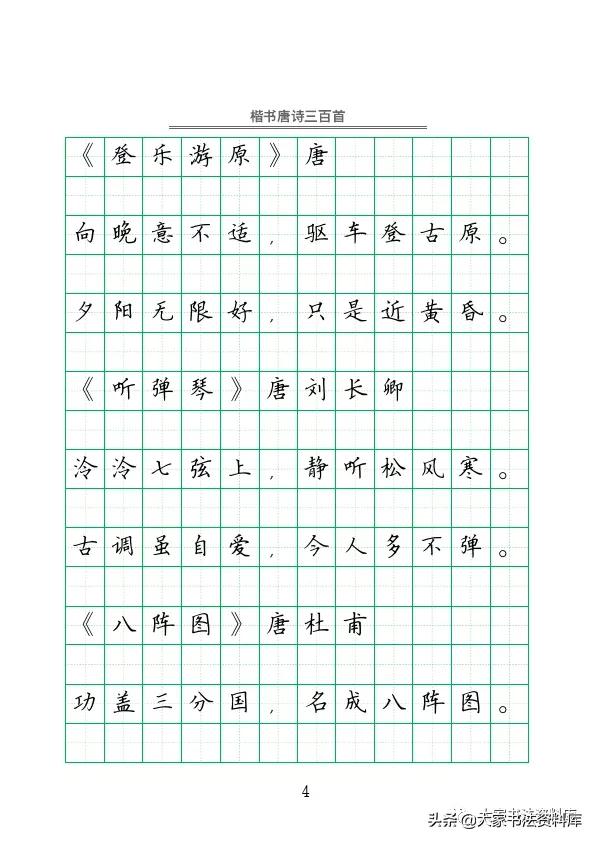 楷书唐诗三百首
《登乐游原》唐
向晚意不适，驱车登古原。
夕阳无限好，只是近黄昏。
《听弹琴》唐刘长卿
泠泠七弦上，静听松风寒。
古调虽自爱，今人多不弹。
《八阵图》唐杜甫
功盖三分国，名成八阵图。
4
大家书法资料库
头条@大家书法资料库